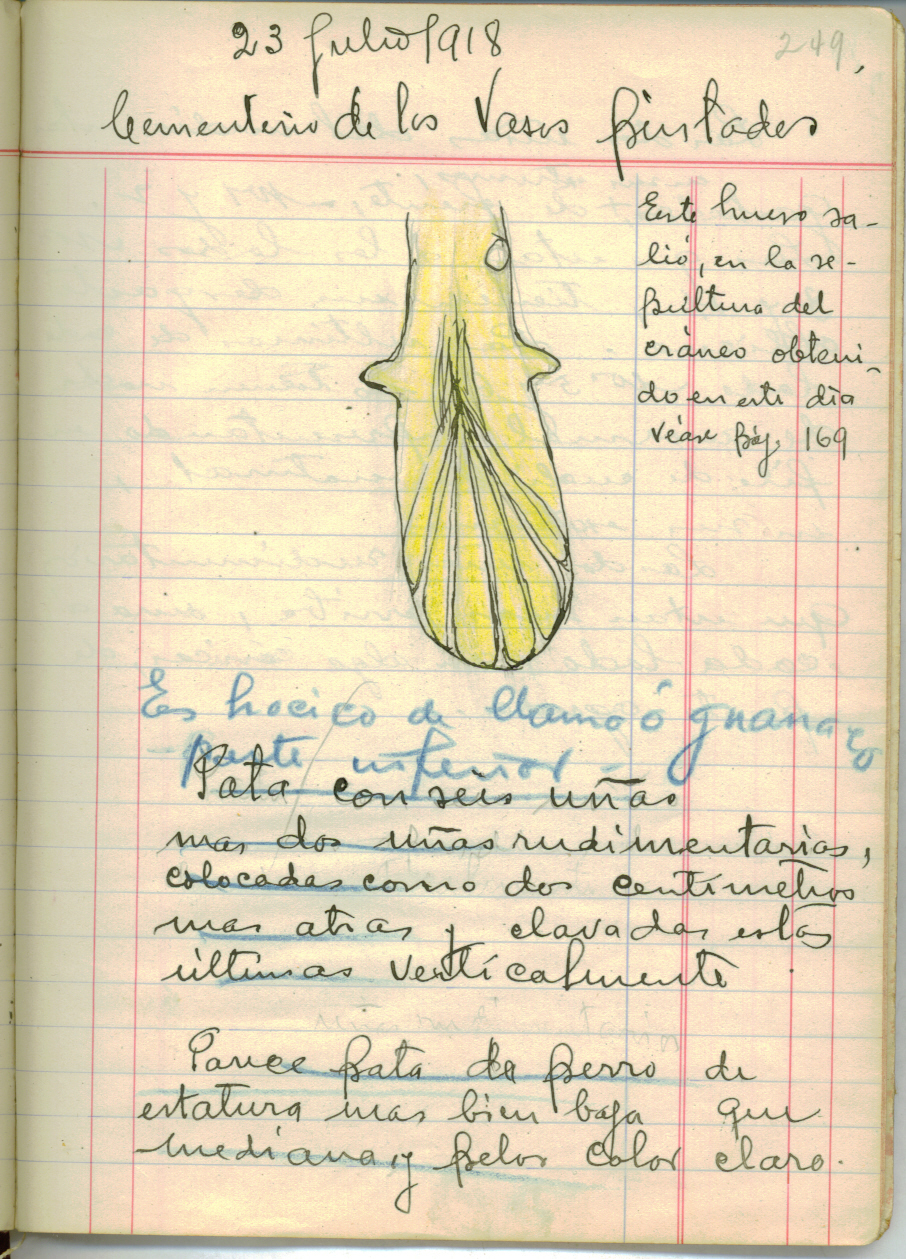 23 Julio 1918
249,
Cementerio de los Vasos pintados
Este hueso sa-
lió, en la se-
pultura del
cráneo obteni-
do en este dia
véase pág. 169
Es hocico de llama ó guanaco
- parte inferior -
Pata con seis uñas
mas dos uñas rudimentarias,
colocadas como dos centímetros
mas atras y clavadas estas
últimas verticalmente
Parece pata de perro de
estatura mas bien baja que
mediana, y pelos color claro.